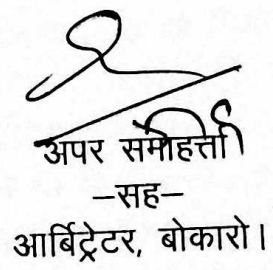 अपर समाहर्त्ता
-सह-
आर्बिट्रेटर, बोकारो।